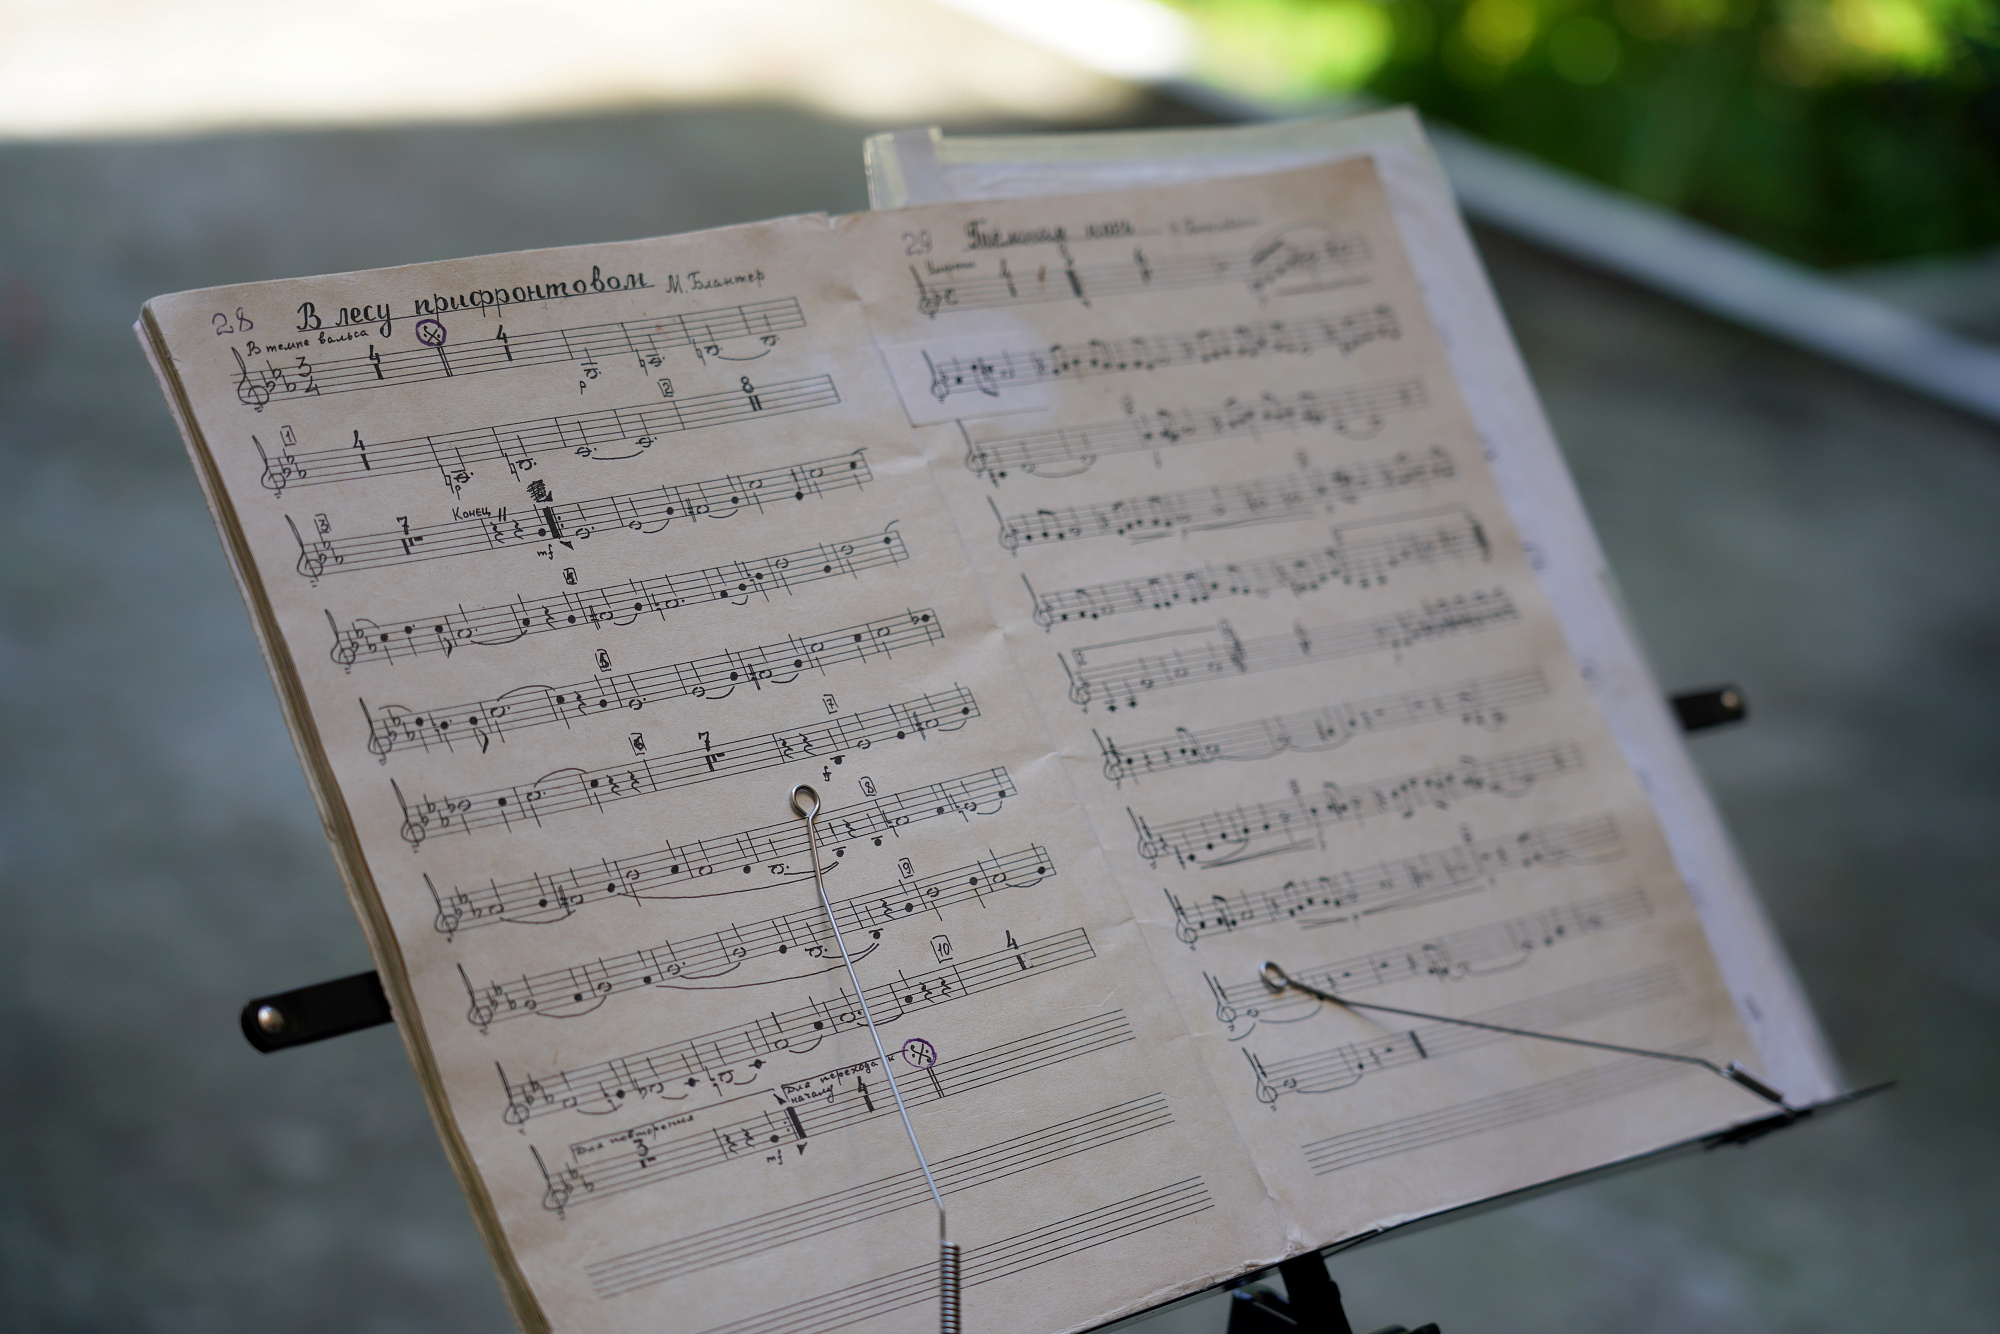 28 В лесу прифронтовом М. Блантер
В темпе вальса
3 4 4 4
p
2
1 4 8
p
3 7 Конец
mf
4
5
6 7 7
f
8
9
10 4
Для повторения 3 Для перехода к началу 4
mf
29 Тёмная ночь